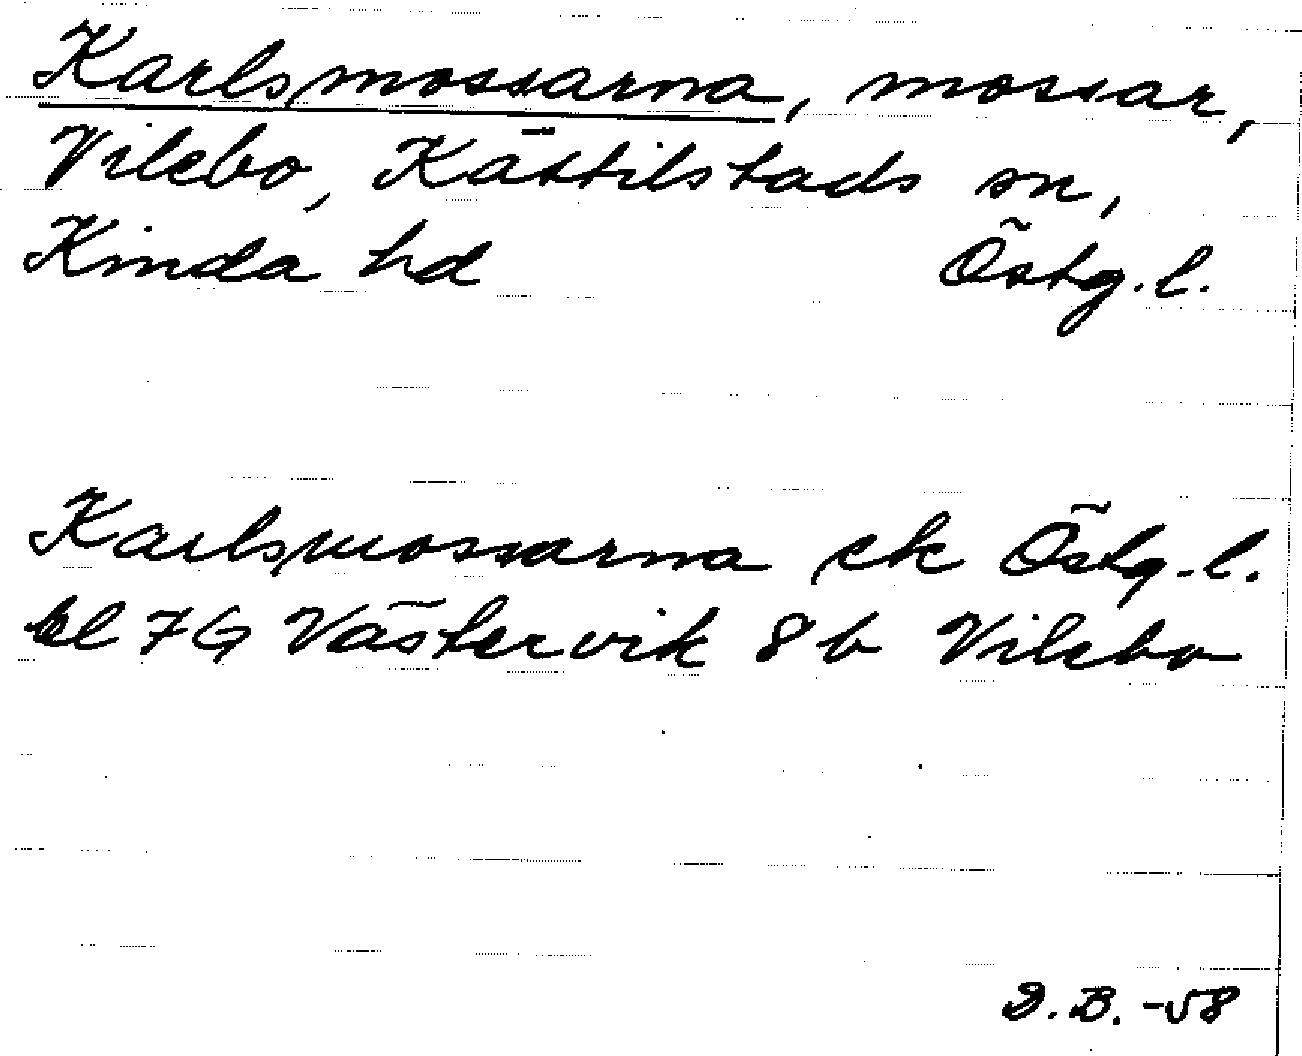 Karlsmossarna, mossar,
Vilebo, Kättilstads sn,
Kinda hd Östg. l.
Karlsmossarna ek Östg. l.
bl 7G Västervik 8 b Vilebo
B. -58